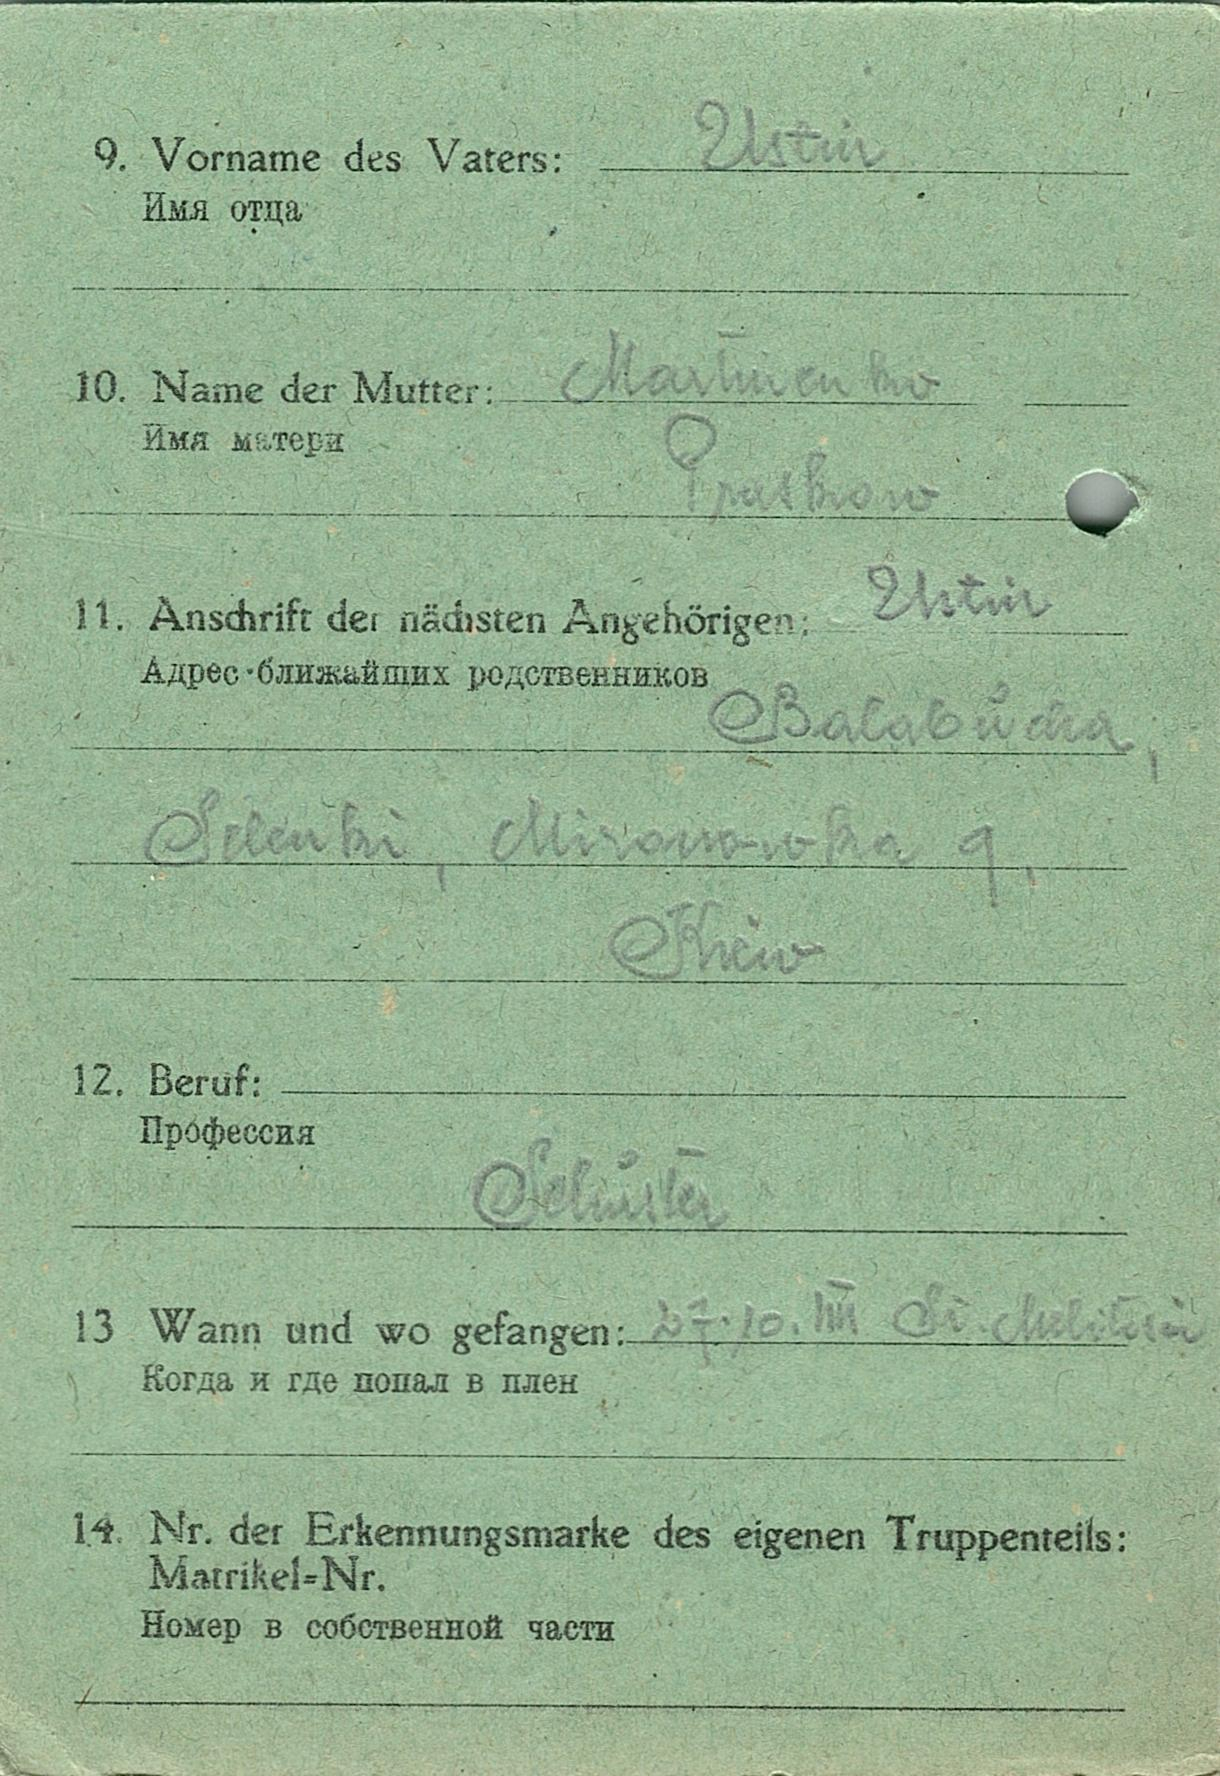 9. Vorname des Vaters: Ustin
Имя отца
10. Name der Mutter: Martinenko
Имя матери
Praskow
11. Anschrift der nächsten Angehörigen: Ustin
Адрес ближайших родственников
Balabucha,
Selenki, Mironowka 9,
Kiew
12. Beruf:
Профессия
Schuster
13 Wann und wo gefangen: 27.10.
Когда и где попал в плен
14. Nr. der Erkennungsmarke des eigenen Truppenteils:
Matrikel=Nr.
Номер в собственной части